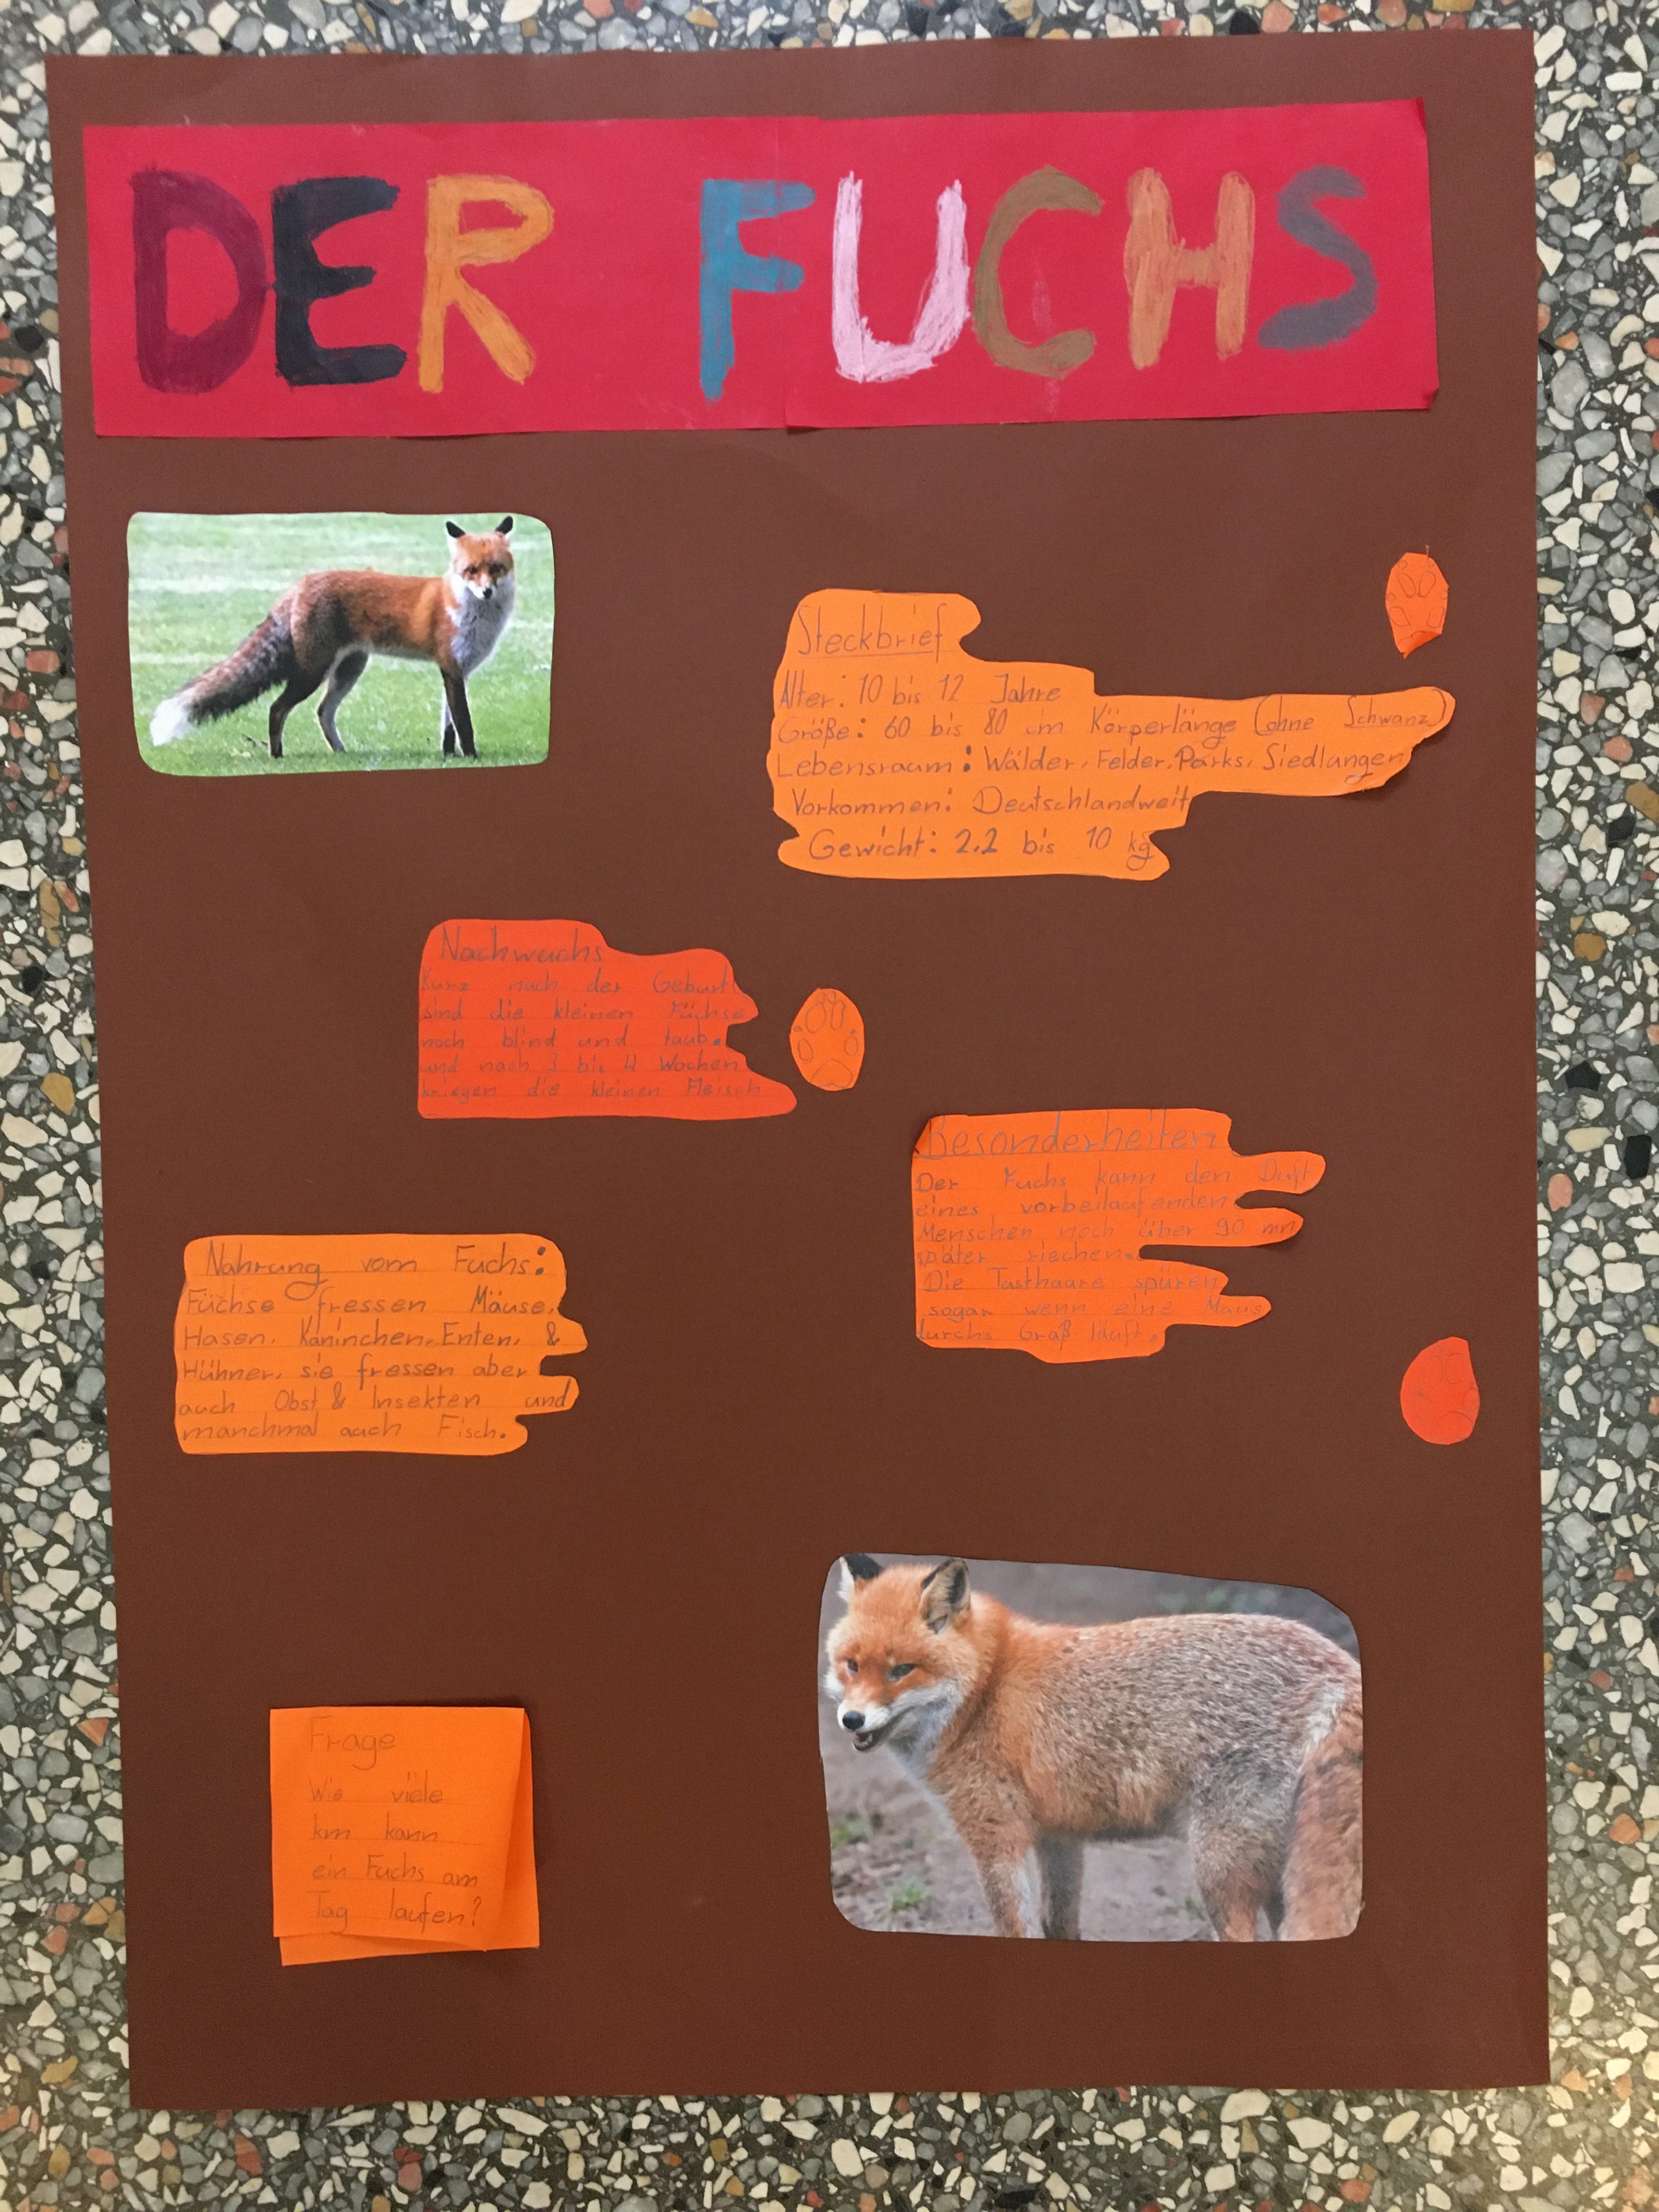 DER FUCHS
Steckbrief
Alter: 10 bis 12 Jahre
Größe: 60 bis 80 cm Körperlänge (ohne Schwanz)
Lebensraum: Wälder, Felder, Parks, Siedlungen
Vorkommen: Deutschlandweit
Gewicht: 2.2 bis 10 kg
Nachwuchs
Kurz nach der Geburt
sind die kleinen Füchse
noch blind und taub.
und nach 3 bis 4 Wochen
kriegen die kleinen Fleisch
Besonderheiten
Der Fuchs kann den Duft
eines vorbeilaufenden
Menschen noch über 90 mn
später riechen.
Die Tasthaare spüren
sogar wenn eine Maus
durchs Graß läuft.
Nahrung vom Fuchs:
Füchse fressen Mäuse,
Hasen, Kaninchen, Enten, &
Hühner, sie fressen aber
auch Obst & Insekten und
manchmal auch Fisch.
Frage
Wie viele
km kann
ein Fuchs am
Tag laufen?